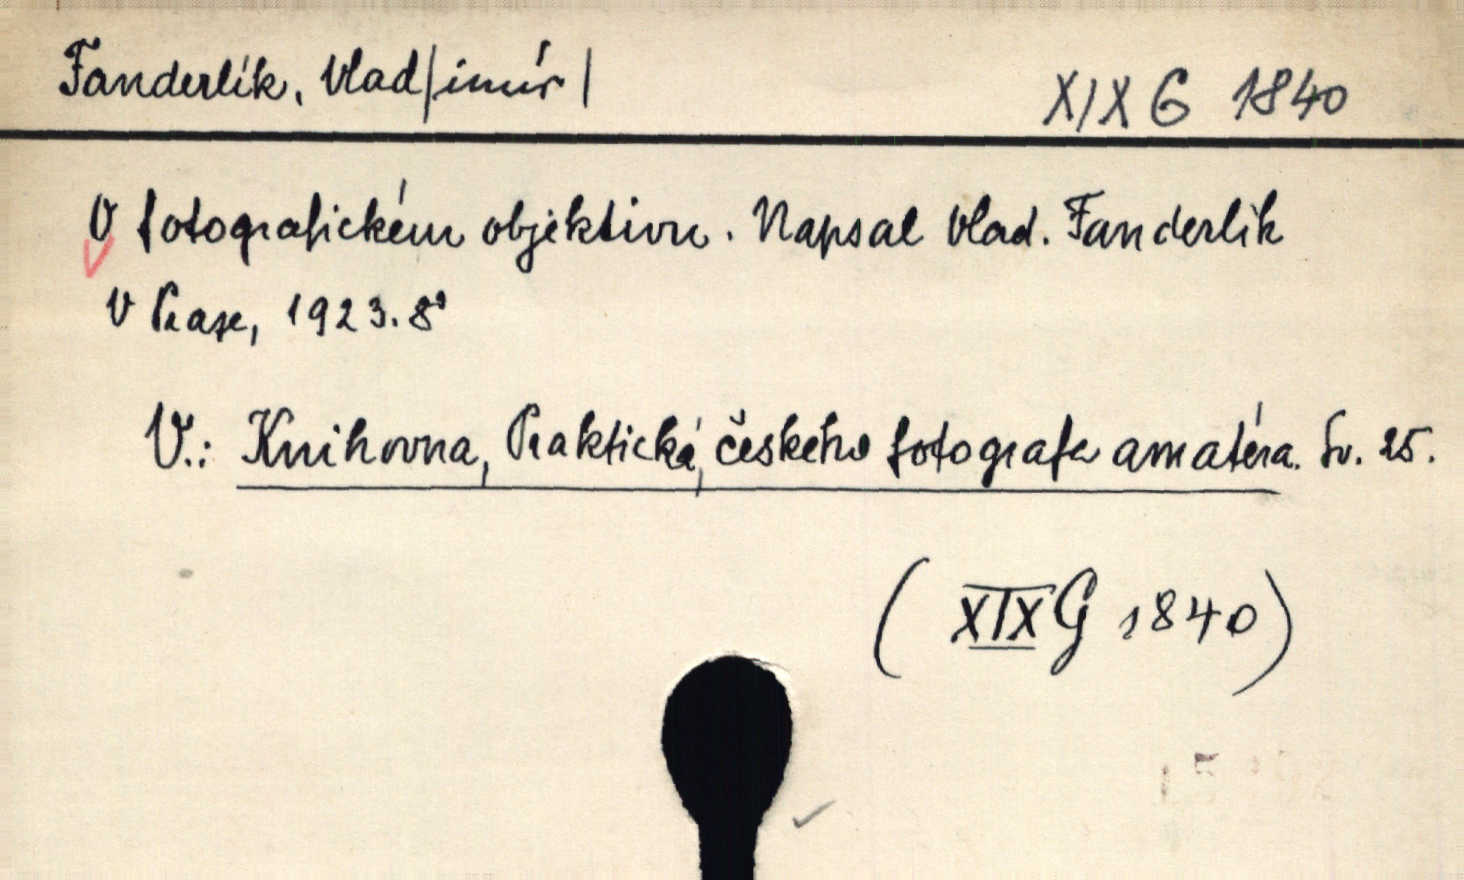 Fanderlík, Vlad|imír|
XIX G 1840
O fotografickém objektivu. Napsal Vlad. Fanderlík
V Praze, 1923. 8°
V.: Knihovna, Praktická, českého fotografa amatéra. Sv. 25.
(XIX G 1840)